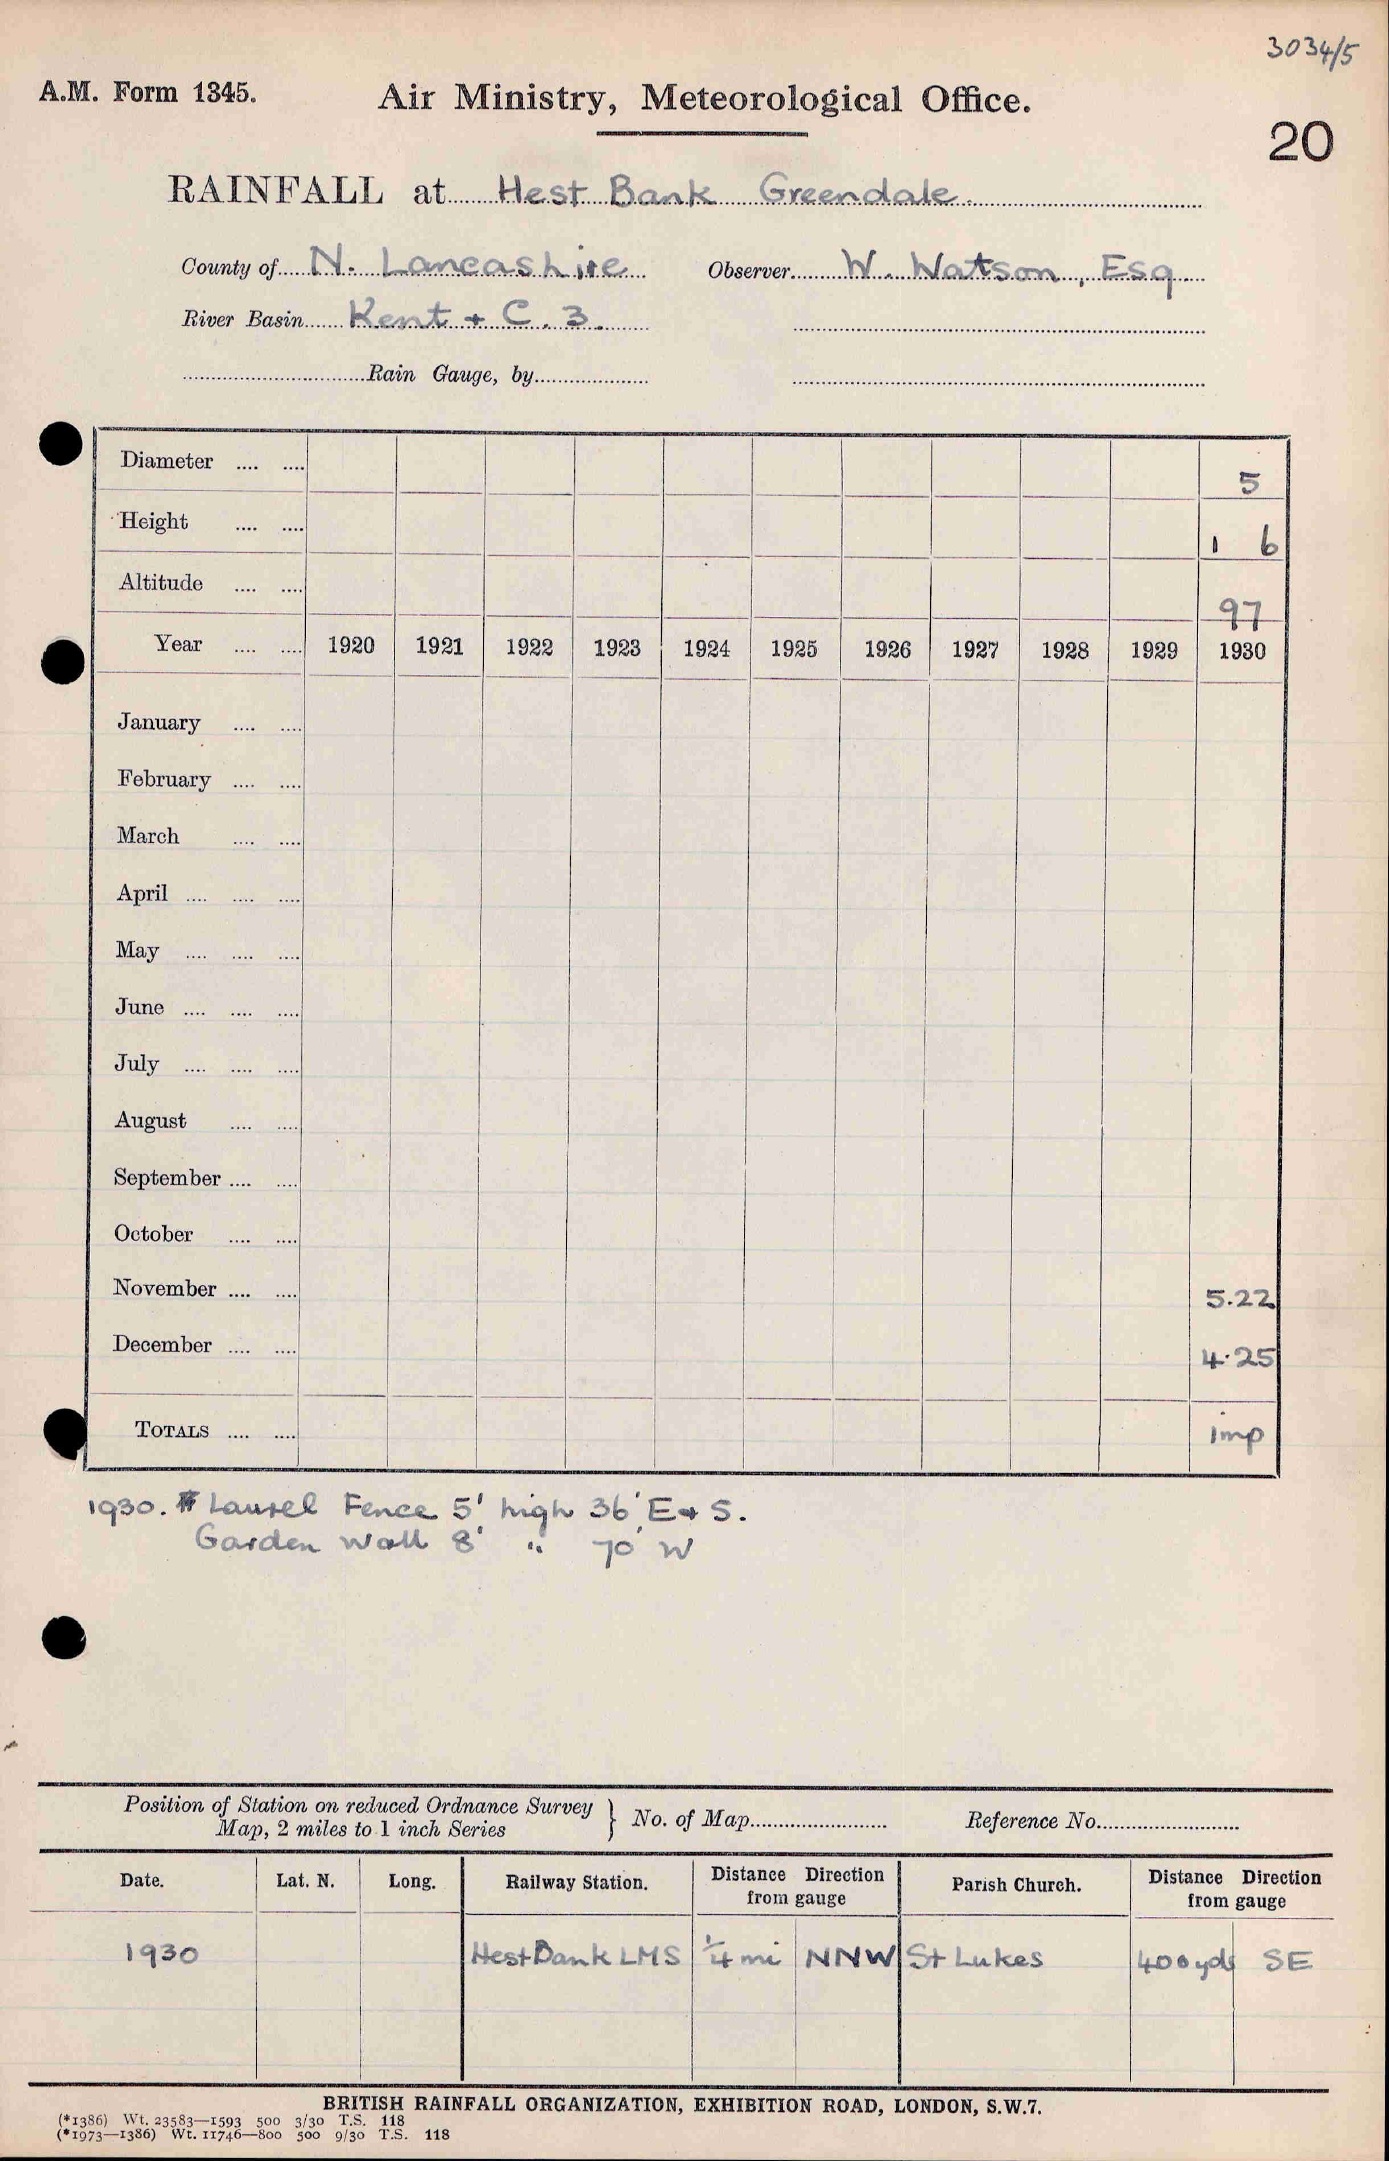 3034/5
A.M. Form 1345.
Air Ministry, Meteorological Office.
20
RAINFALL at Hest Bank Greendale.
County of N. Lancashire Observer W. Watson, Esq.
River Basin Kent + C. 3.
Rain Gauge, by
Diameter .... .... 5
Height .... .... 1 6
Altitude .... .... 97
Year .... .... 1920 1921 1922 1923 1924 1925 1926 1927 1928 1929 1930
January .... ....
February .... ....
March .... ....
April .... .... ....
May .... .... ....
June .... .... ....
July .... .... ....
August .... ....
September .... ....
October .... ....
November .... .... 5.22
December .... .... 4.25
TOTALS .... .... imp
1930. Laurel Fence 5' high 36' E + S.
Garden Wall 8' " 70' W
Position of Station on reduced Ordnance Survey
Map, 2 miles to 1 inch Series } No. of Map Reference No.
Date. Lat. N. Long. Railway Station. Distance Direction from gauge Parish Church. Distance Direction from gauge
1930 Hest Bank LMS 1/4 mi NNW St Lukes 400 yds SE
BRITISH RAINFALL ORGANIZATION, EXHIBITION ROAD, LONDON, S.W.7.
(*1386) Wt. 23583—1593 500 3/30 T.S. 118
(*1973—1386) Wt. 11746—800 500 9/30 T.S. 118